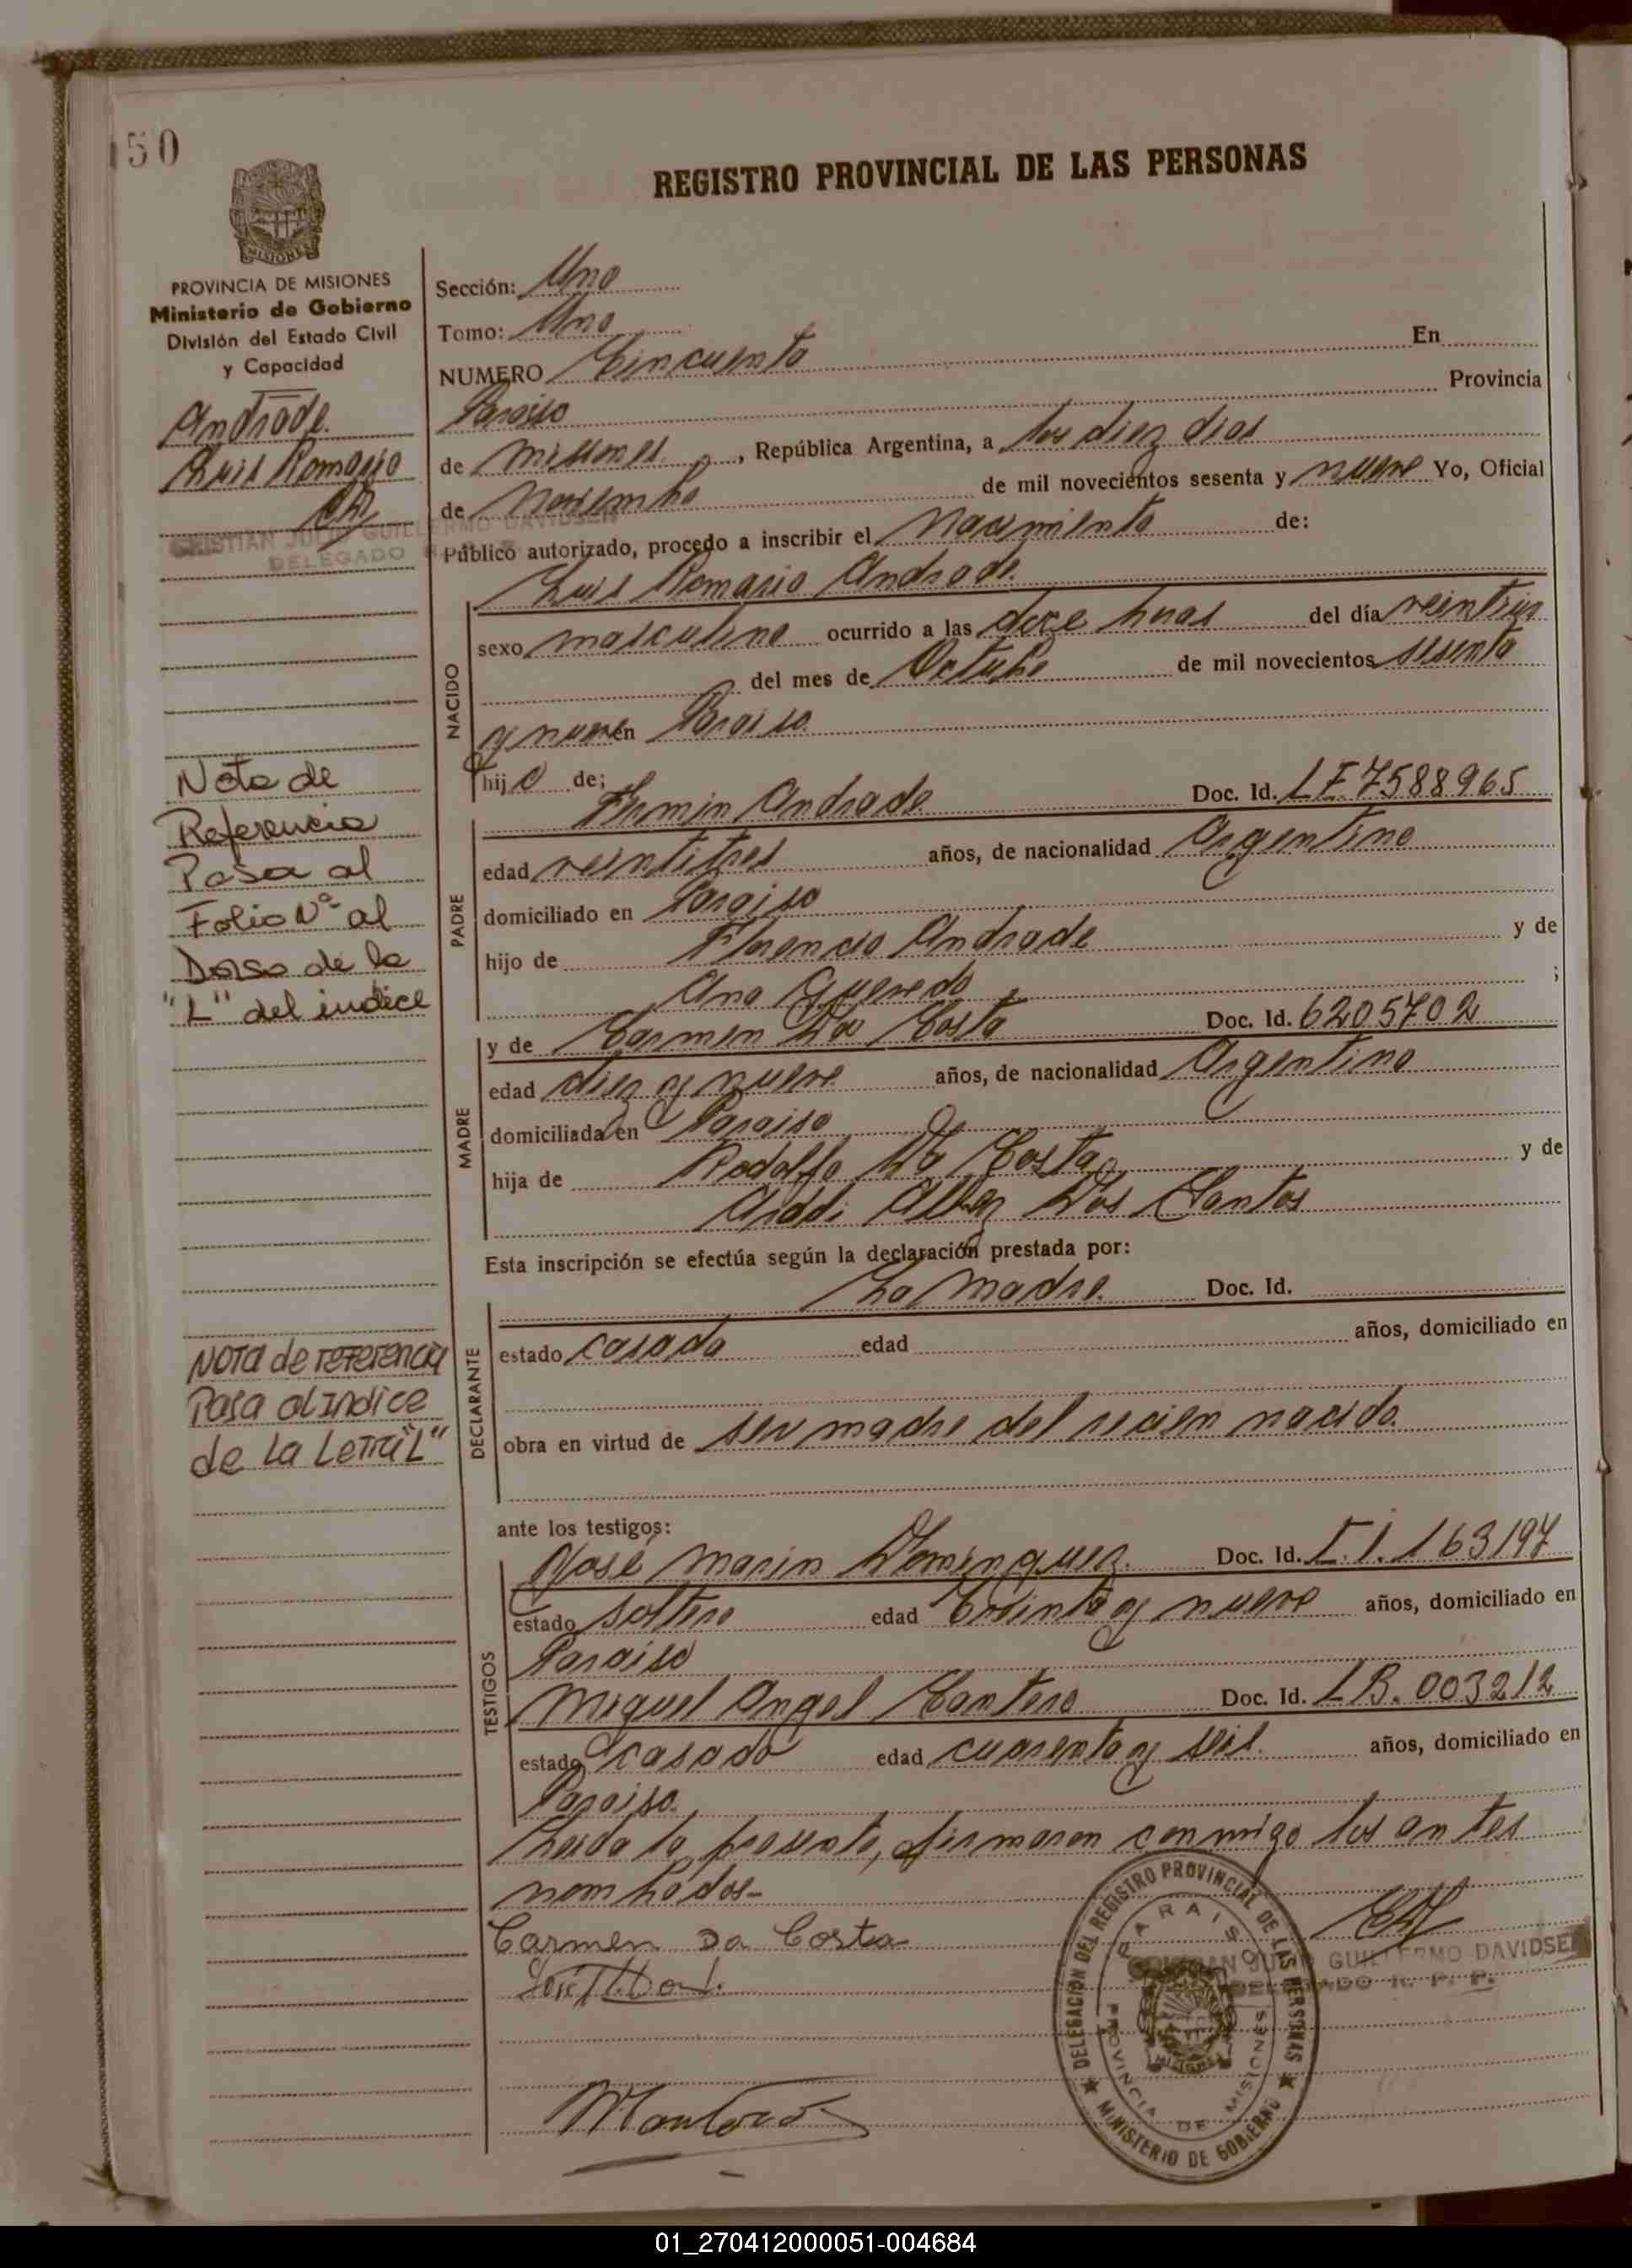 50
REGISTRO PROVINCIAL DE LAS PERSONAS
MISIONES
PROVINCIA DE MISIONES
Ministerio de Gobierno
División del Estado Civil
y Capacidad
Andrade
Luis Romario
CRISTIAN JULIO GUILLERMO DAVIDSEN
DELEGADO
Nota de
Referencia
Pasa al
Folio Nº al
Dorso de la
"L" del indice
Nota de referencia
Pasa al Indice
de La Letra "L"
Sección: Uno
Tomo: Uno
NUMERO Cincuenta En
Paraiso Provincia
de Misiones, República Argentina, a los diez dias
de Noviembre de mil novecientos sesenta y nueve Yo, Oficial
Público autorizado, procedo a inscribir el Nacimiento de:
NACIDO
Luis Romario Andrade
sexo masculino ocurrido a las doce horas del día veintitres
del mes de Octubre de mil novecientos sesenta
y nueve en Paraiso
hijo de;
PADRE
Fermin Andrade Doc. Id. L E 7588965
edad veintitres años, de nacionalidad Argentino
domiciliado en Paraiso
hijo de Florencio Andrade y de
Ana ;
MADRE
y de Carmen Da Costa Doc. Id. 6205702
edad diez y nueve años, de nacionalidad Argentina
domiciliada en Paraiso
hija de Rodolfo Da Costa y de
Dos Santos
Esta inscripción se efectúa según la declaración prestada por:
DECLARANTE
La Madre. Doc. Id.
estado casada edad años, domiciliado en
obra en virtud de ser madre del recien nacido.
ante los testigos:
TESTIGOS
José Marin Dominguez. Doc. Id. C.I. 163197
estado soltero edad treinta y nueve años, domiciliado en
Paraiso
Miguel Angel Cantero Doc. Id. L B. 003212
estado casado edad cuarenta y seis. años, domiciliado en
Paraiso.
Leida la presente, firmaron conmigo los antes
nombrados-
Carmen Da Costa
DELEGACION DEL REGISTRO PROVINCIAL DE LAS PERSONAS
MINISTERIO DE GOBIERNO
PARAISO
PROVINCIA DE MISIONES
CRISTIAN JULIO GUILLERMO DAVIDSEN
DELEGADO R. P. P.
01_270412000051-004684